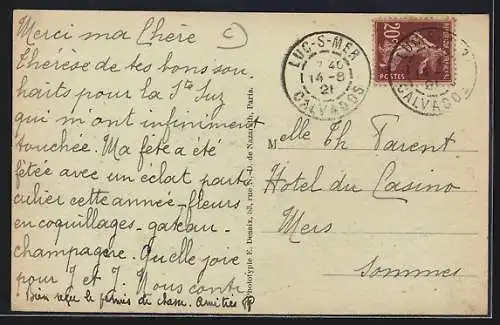 Merci ma Chère
Thérèse de tes bons sou
haits pour la Ste Suz
qui m'ont infiniment
touchée. Ma fête a été
fêtée avec un éclat part
culier cette année - fleurs
en coquillages - gateau -
champagne. Quelle joie
pour J et J. Nous conti
Bien reçu le permis de chasse. Amitiés
LUC-S-MER
7 40
14 -8
21
CALVADOS
20c
POSTES
LUC
CALVADOS
Melle Th Parent
Hotel du Casino
Mers
Sommes
Phototypie E. Desaix, 53, rue N.-D. de Nazareth, Paris.